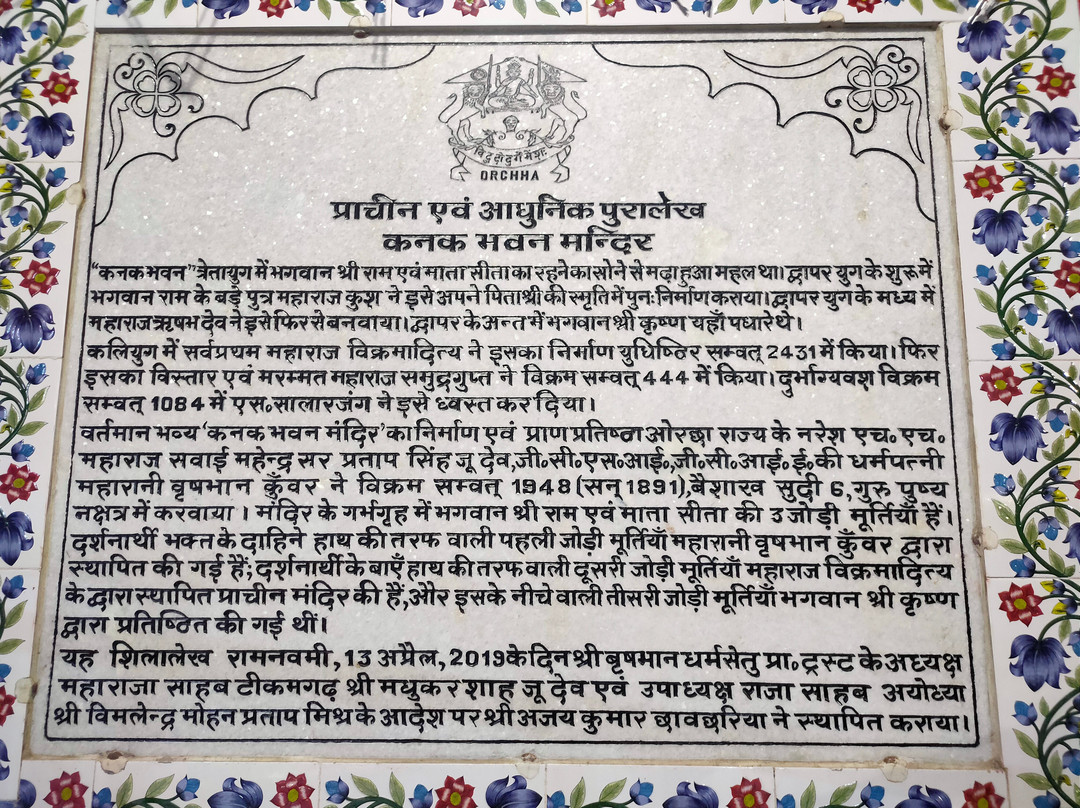 ORCHHA
प्राचीन एवं आधुनिक पुरालेख
कनक भवन मन्दिर
"कनक भवन" त्रेतायुग में भगवान श्री राम एवं माता सीता का रहने का सोने से मढ़ा हुआ महल था। द्वापर युग के शुरू में
भगवान राम के बड़े पुत्र महाराज कुश ने इसे अपने पिताश्री की स्मृति में पुनः निर्माण कराया। द्वापर युग के मध्य में
महाराज ऋषभ देव ने इसे फिर से बनवाया। द्वापर के अन्त में भगवान श्री कृष्ण यहाँ पधारे थे।
कलियुग में सर्वप्रथम महाराज विक्रमादित्य ने इसका निर्माण युधिष्ठिर सम्वत् 2431 में किया। फिर
इसका विस्तार एवं मरम्मत महाराज समुद्रगुप्त ने विक्रम सम्वत् 444 में किया। दुर्भाग्यवश विक्रम
सम्वत् 1084 में एस॰ सालारजंग ने इसे ध्वस्त कर दिया।
वर्तमान भव्य 'कनक भवन मंदिर' का निर्माण एवं प्राण प्रतिष्ठा ओरछा राज्य के नरेश एच॰ एच॰
महाराज सवाई महेन्द्र सर प्रताप सिंह जू देव, जी॰ सी॰ एस॰ आई॰, जी॰ सी॰ आई॰ ई॰ की धर्मपत्नी
महारानी वृषभान कुँवर ने विक्रम सम्वत् 1948 (सन् 1891), बैशाख सुदी 6, गुरु पुष्य
नक्षत्र में करवाया। मंदिर के गर्भगृह में भगवान श्री राम एवं माता सीता की 3 जोड़ी मूर्तियाँ हैं।
दर्शनार्थी भक्त के दाहिने हाथ की तरफ वाली पहली जोड़ी मूर्तियाँ महारानी वृषभान कुँवर द्वारा
स्थापित की गई हैं; दर्शनार्थी के बाएँ हाथ की तरफ वाली दूसरी जोड़ी मूर्तियाँ महाराज विक्रमादित्य
के द्वारा स्थापित प्राचीन मंदिर की हैं, और इसके नीचे वाली तीसरी जोड़ी मूर्तियाँ भगवान श्री कृष्ण
द्वारा प्रतिष्ठित की गई थीं।
यह शिलालेख रामनवमी, 13 अप्रैल, 2019 के दिन श्री बृषभान धर्मसेतु प्रा॰ ट्रस्ट के अध्यक्ष
महाराजा साहब टीकमगढ़ श्री मधुकर शाह जू देव एवं उपाध्यक्ष राजा साहब अयोध्या
श्री विमलेन्द्र मोहन प्रताप मिश्र के आदेश पर श्री अजय कुमार छावछरिया ने स्थापित कराया।